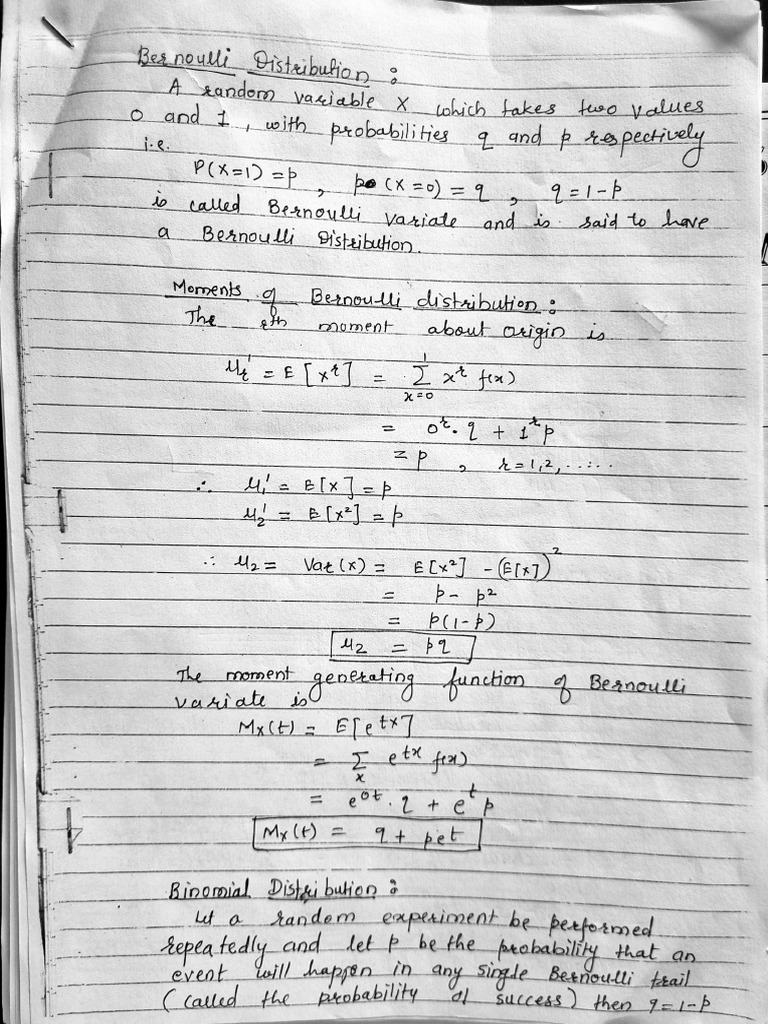 Bernoulli Distribution :
A random variable X which takes two values
0 and 1, with probabilities q and p respectively
i.e.
P(X=1) = p , p(X=0) = q , q = 1-p
is called Bernoulli variate and is said to have
a Bernoulli Distribution.
Moments of Bernoulli distribution :
The rth moment about origin is
μr' = E[X^r] = Σ_{x=0}^{1} x^r f(x)
= 0^r. q + 1^r p
= p , r = 1,2, ......
∴ μ1' = E[X] = p
μ2' = E[X²] = p
∴ μ2 = Var(x) = E[X²] - (E[X])²
= p - p²
= p(1-p)
μ2 = pq
The moment generating function of Bernoulli
variate is
Mx(t) = E[e^{tx}]
= Σ_x e^{tx} f(x)
= e^{0t}. q + e^t p
Mx(t) = q + pet
Binomial Distribution :
Let a random experiment be performed
repeatedly and let p be the probability that an
event will happen in any single Bernoulli trail
(called the probability of success) then q = 1-p